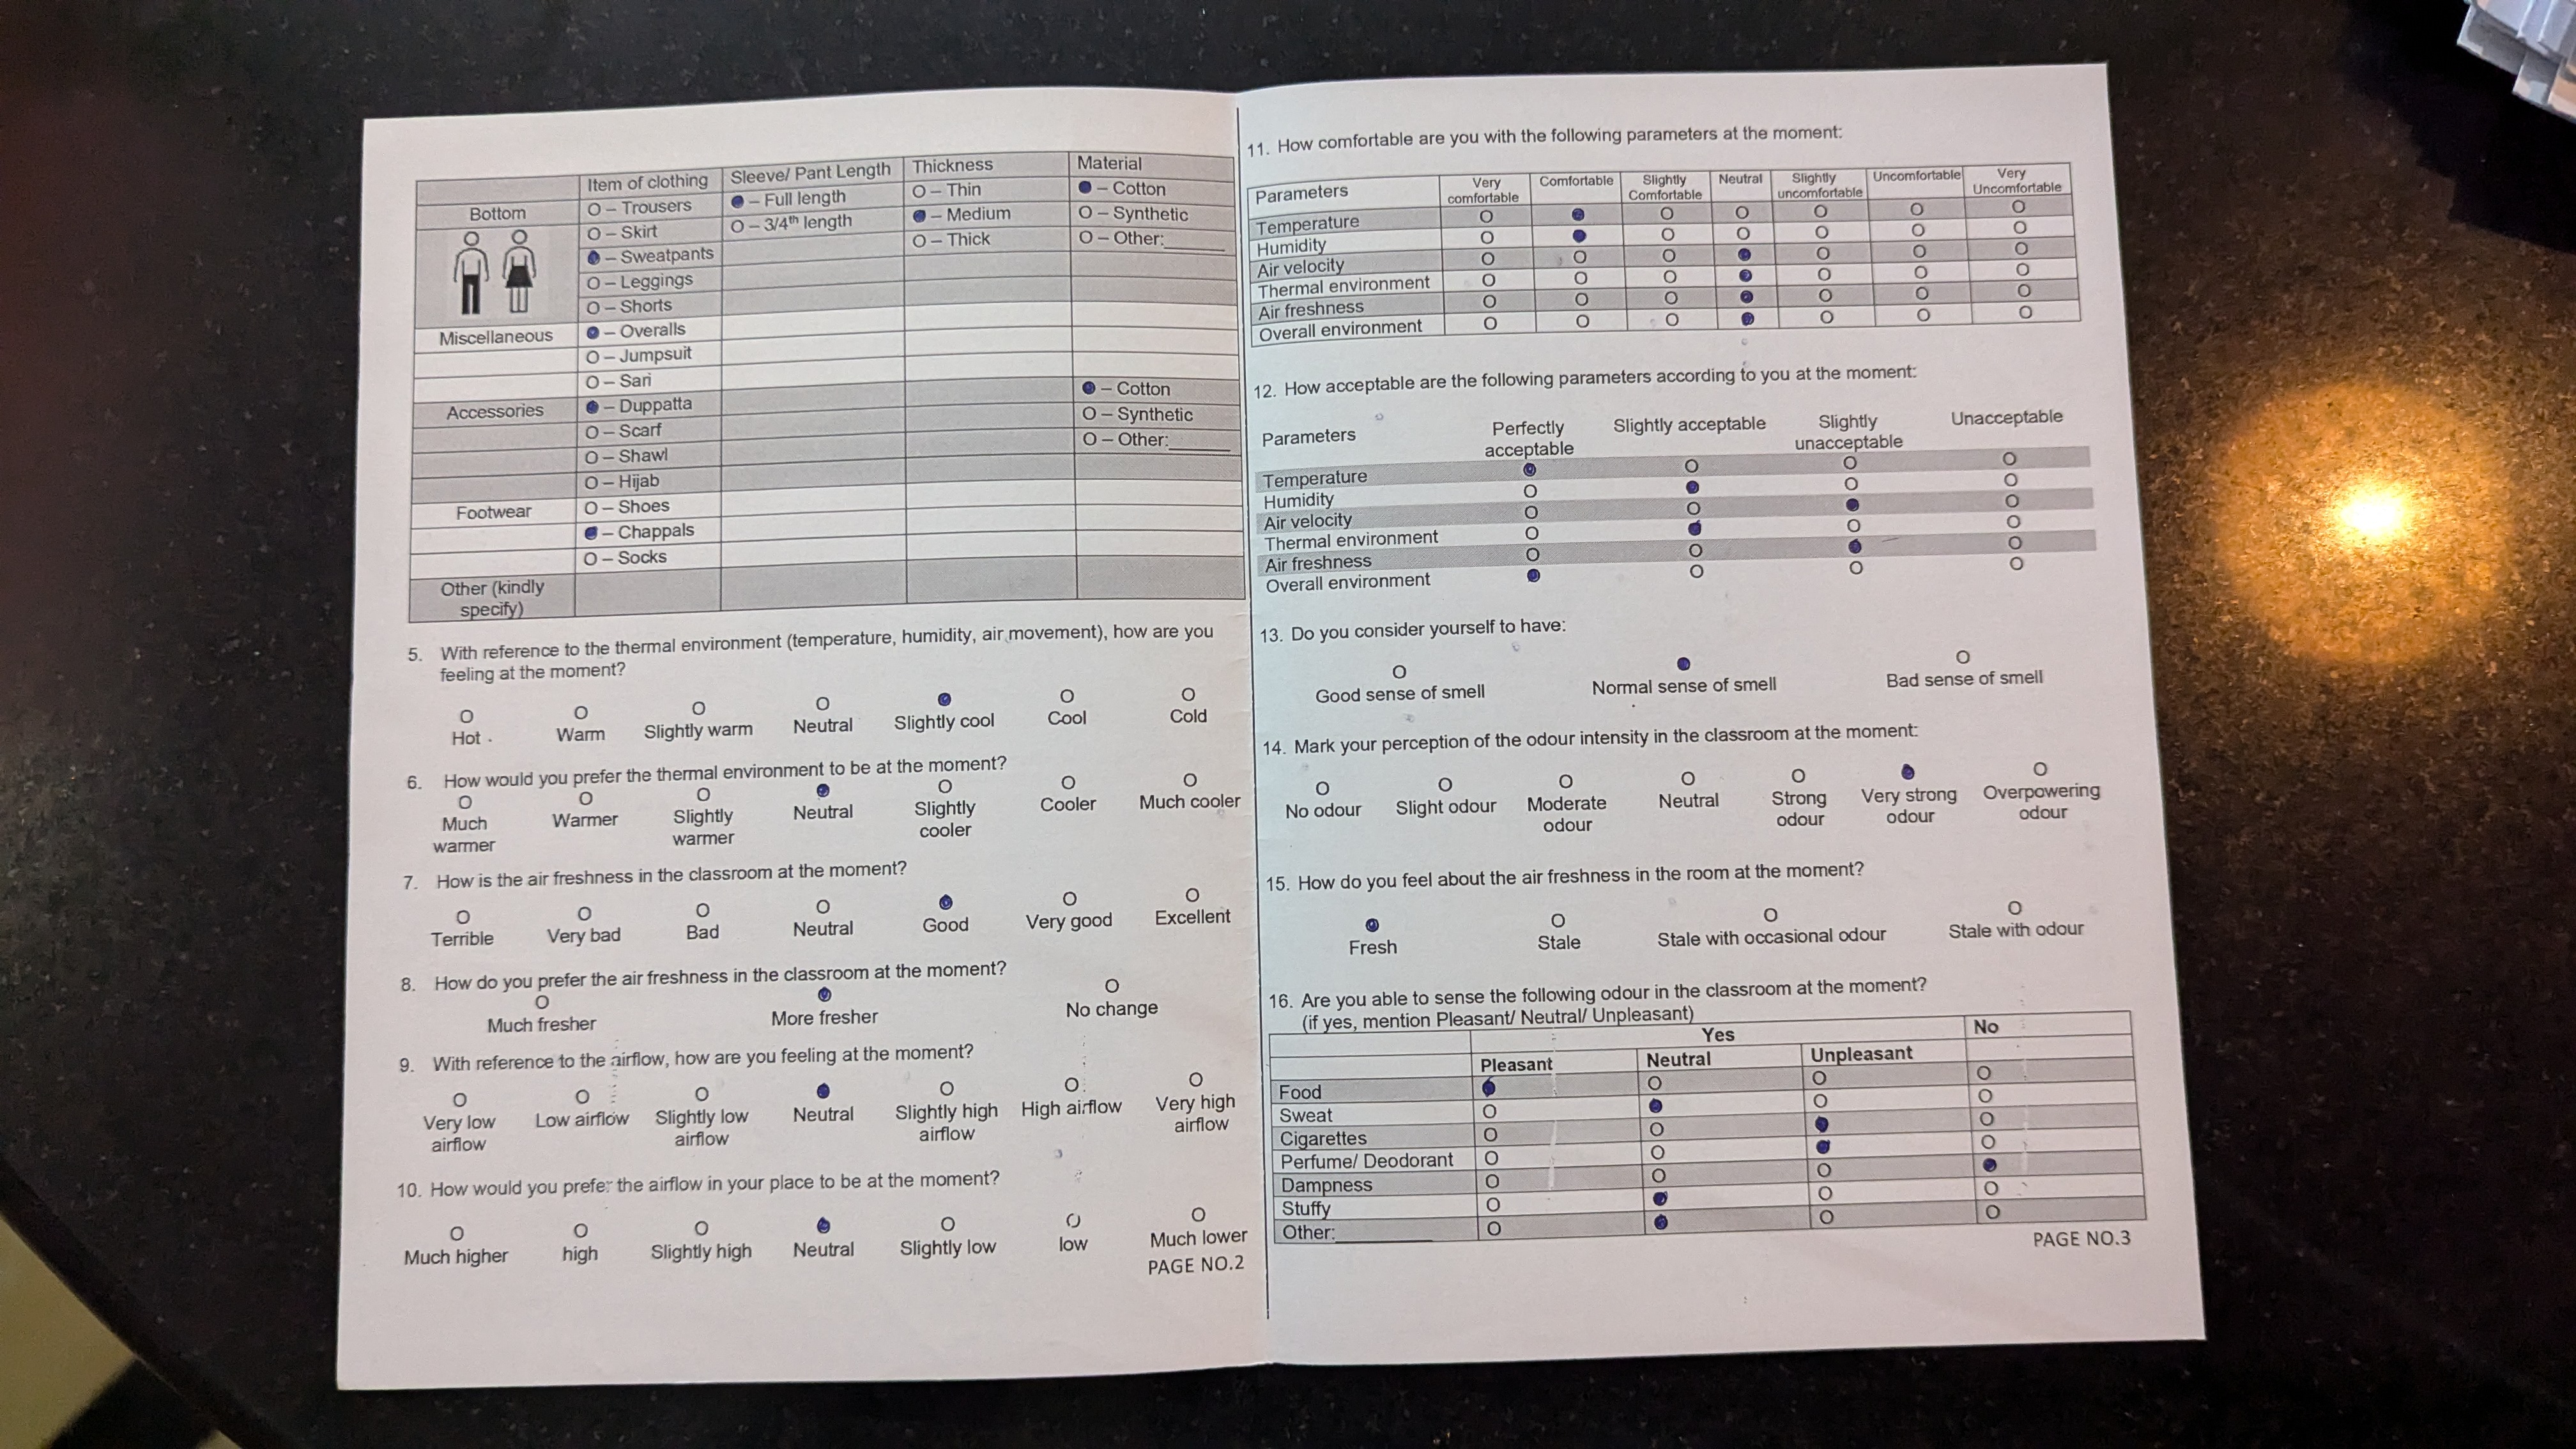 Item of clothing Sleeve/ Pant Length Thickness Material
Bottom O – Trousers ● – Full length O – Thin ● – Cotton
O – Skirt O – 3/4th length ● – Medium O – Synthetic
● – Sweatpants O – Thick O – Other:______
O – Leggings
O – Shorts
Miscellaneous ● – Overalls
O – Jumpsuit
O – Sari
Accessories ● – Duppatta ● – Cotton
O – Scarf O – Synthetic
O – Shawl O – Other:______
O – Hijab
Footwear O – Shoes
● – Chappals
O – Socks
Other (kindly
specify)
5. With reference to the thermal environment (temperature, humidity, air movement), how are you
feeling at the moment?
O O O O ● O O
Hot Warm Slightly warm Neutral Slightly cool Cool Cold
6. How would you prefer the thermal environment to be at the moment?
O O O ● O O O
Much Warmer Slightly Neutral Slightly Cooler Much cooler
warmer warmer cooler
7. How is the air freshness in the classroom at the moment?
O O O O ● O O
Terrible Very bad Bad Neutral Good Very good Excellent
8. How do you prefer the air freshness in the classroom at the moment?
O ● O
Much fresher More fresher No change
9. With reference to the airflow, how are you feeling at the moment?
O O O ● O O O
Very low Low airflow Slightly low Neutral Slightly high High airflow Very high
airflow airflow airflow airflow
10. How would you prefer the airflow in your place to be at the moment?
O O O ● O O O
Much higher high Slightly high Neutral Slightly low low Much lower
PAGE NO.2
11. How comfortable are you with the following parameters at the moment:
Parameters Very Comfortable Slightly Neutral Slightly Uncomfortable Very
comfortable Comfortable uncomfortable Uncomfortable
Temperature O ● O O O O O
Humidity O ● O O O O O
Air velocity O O O ● O O O
Thermal environment O O O ● O O O
Air freshness O O O ● O O O
Overall environment O O O ● O O O
12. How acceptable are the following parameters according to you at the moment:
Parameters Perfectly Slightly acceptable Slightly Unacceptable
acceptable unacceptable
Temperature ● O O O
Humidity O ● O O
Air velocity O O ● O
Thermal environment O ● O O
Air freshness O O ● O
Overall environment ● O O O
13. Do you consider yourself to have:
O ● O
Good sense of smell Normal sense of smell Bad sense of smell
14. Mark your perception of the odour intensity in the classroom at the moment:
O O O O O ● O
No odour Slight odour Moderate Neutral Strong Very strong Overpowering
odour odour odour odour
15. How do you feel about the air freshness in the room at the moment?
● O O O
Fresh Stale Stale with occasional odour Stale with odour
16. Are you able to sense the following odour in the classroom at the moment?
(if yes, mention Pleasant/ Neutral/ Unpleasant)
Yes No
Pleasant Neutral Unpleasant
Food ● O O O
Sweat O ● O O
Cigarettes O O ● O
Perfume/ Deodorant O O ● O
Dampness O O O ●
Stuffy O ● O O
Other:__________ O ● O O
PAGE NO.3